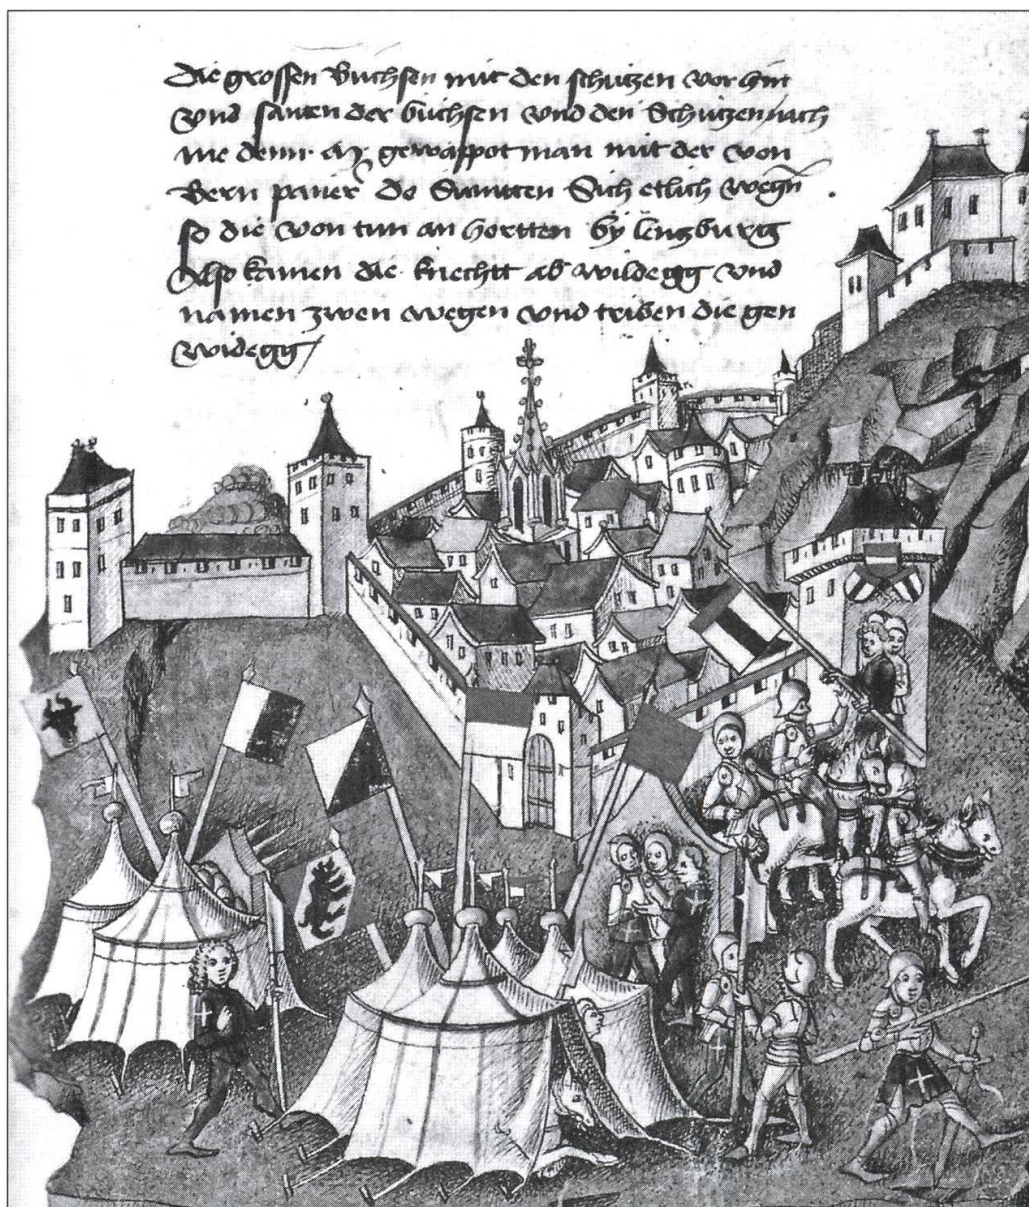 die grossen Buchsen mit den schutzen vor hin
Vnd santen der büchsen vnd den Schutzen nach
me denn gewappot man mit der von
Bern paner do Sumtten Sich etlich wegn
so die von tun an hortten by lentzburg
Also kamen die knechtt ab wildegg vnd
namen zwen wegen vnd triben die gen
wildegg